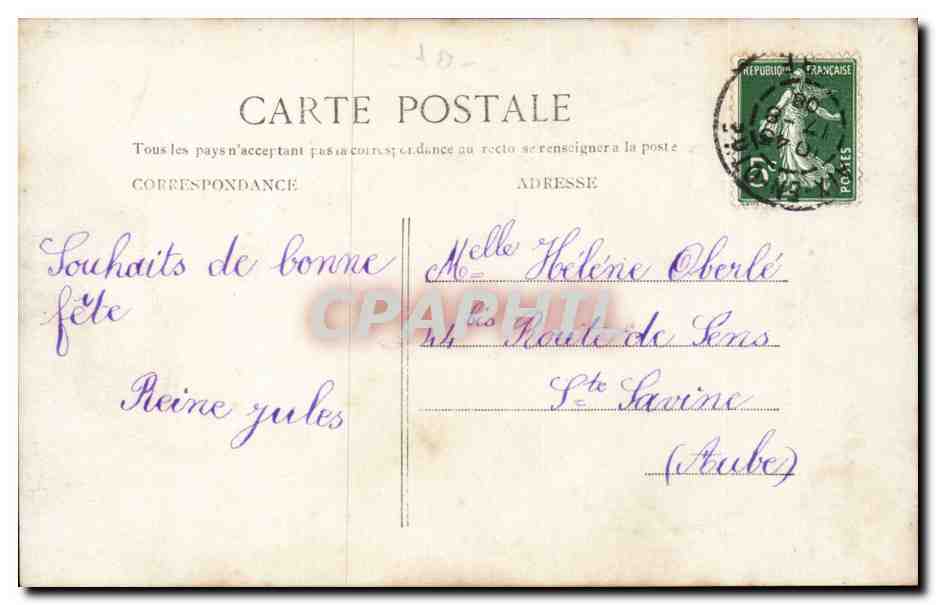 CARTE POSTALE
Tous les pays n'acceptant pas la correspondance au recto se renseigner a la poste
CORRESPONDANCE
ADRESSE
RÉPUBLIQUE FRANÇAISE
POSTES
Souhaits de bonne
fête
Reine Jules
Melle Hélène Oberlé
44 bis Route de Sens
Ste Savine
(Aube)
CPAPHIL